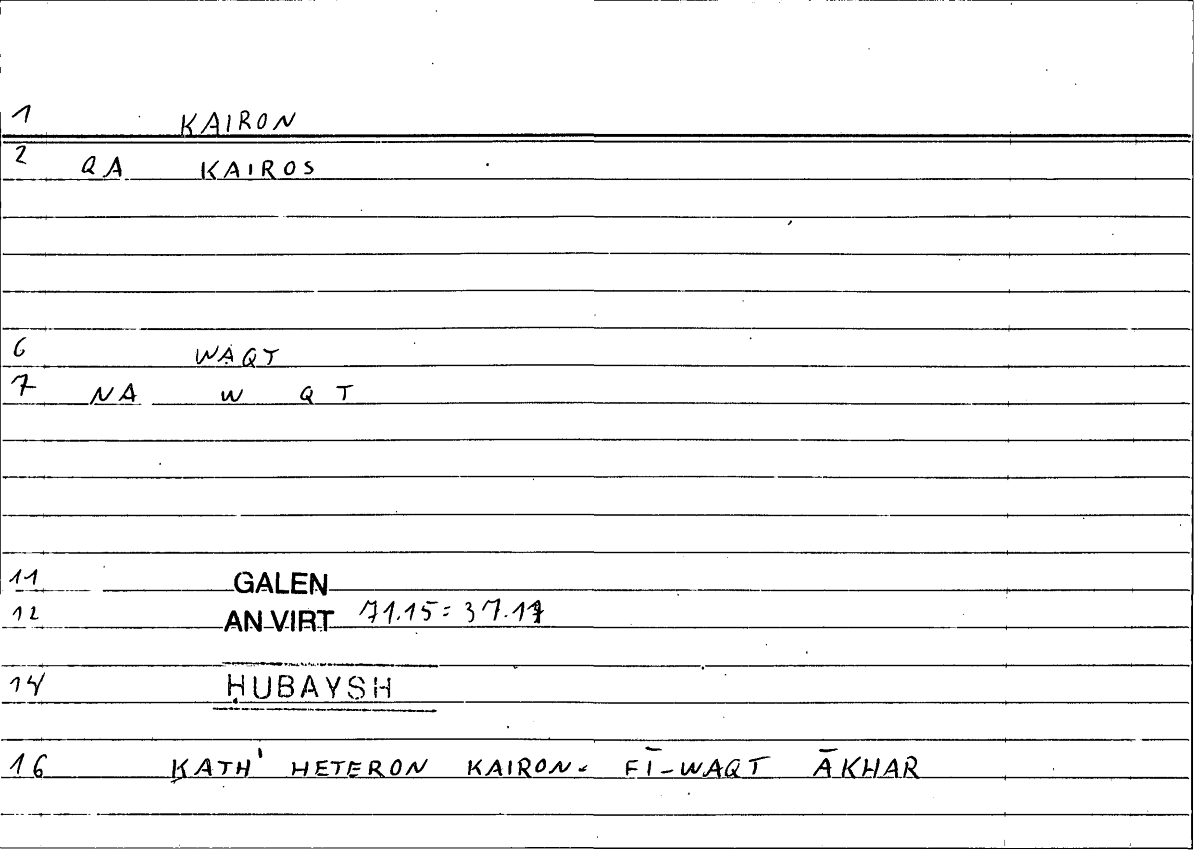 1 KAIRON
2 QA KAIROS
6 WAQT
7 NA W Q T
11 GALEN
12 AN VIRT 71.15 = 37.17
14 ḤUBAYSH
16 KATH' HETERON KAIRON. FĪ-WAQT ĀKHAR